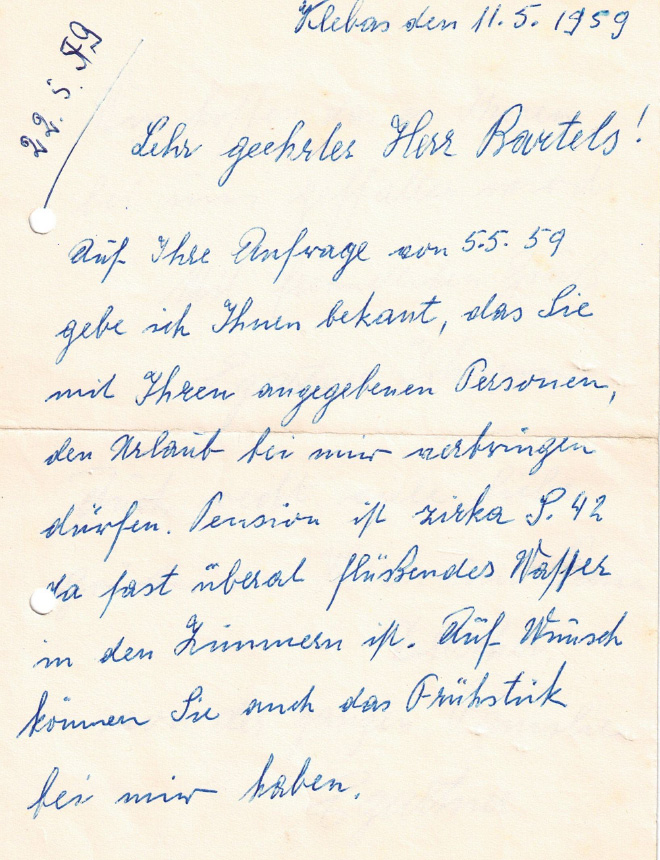 Klebas den 11.5.1959
22.5.59
Sehr geehrter Herr Bartels!
Auf Ihre Anfrage von 5.5.59
gebe ich Ihnen bekant, das Sie
mit Ihren angegebenen Personen,
den Urlaub bei mir verbringen
dürfen. Pension ist zirka S. 42
Da fast überal flüßendes Wasser
in den Zimmern ist. Auf Wunsch
können Sie auch das Frühstük
bei mir haben.